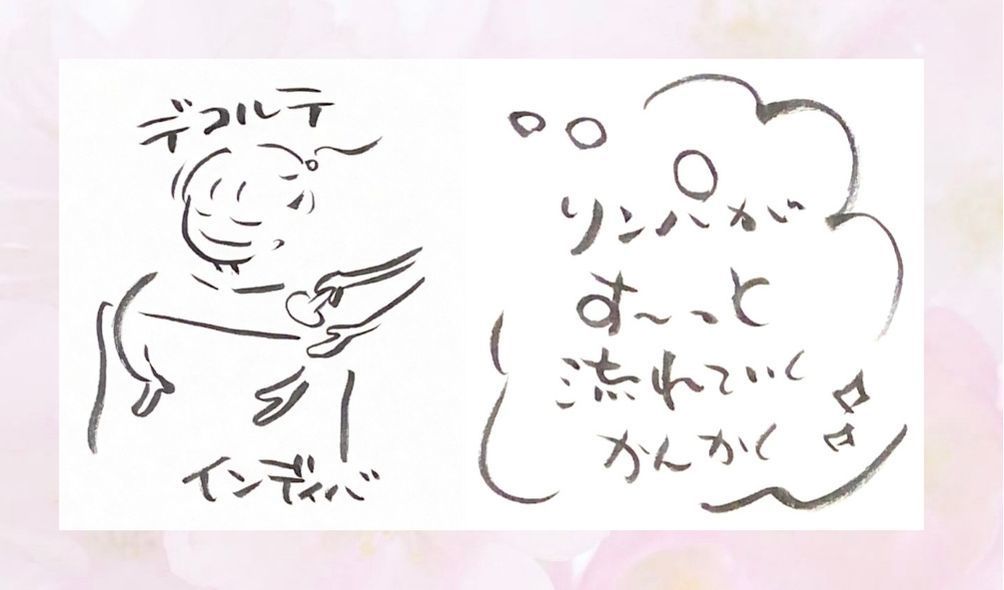 デコルテ
インディバ
リンパが
す〜っと
流れていく
かんかく